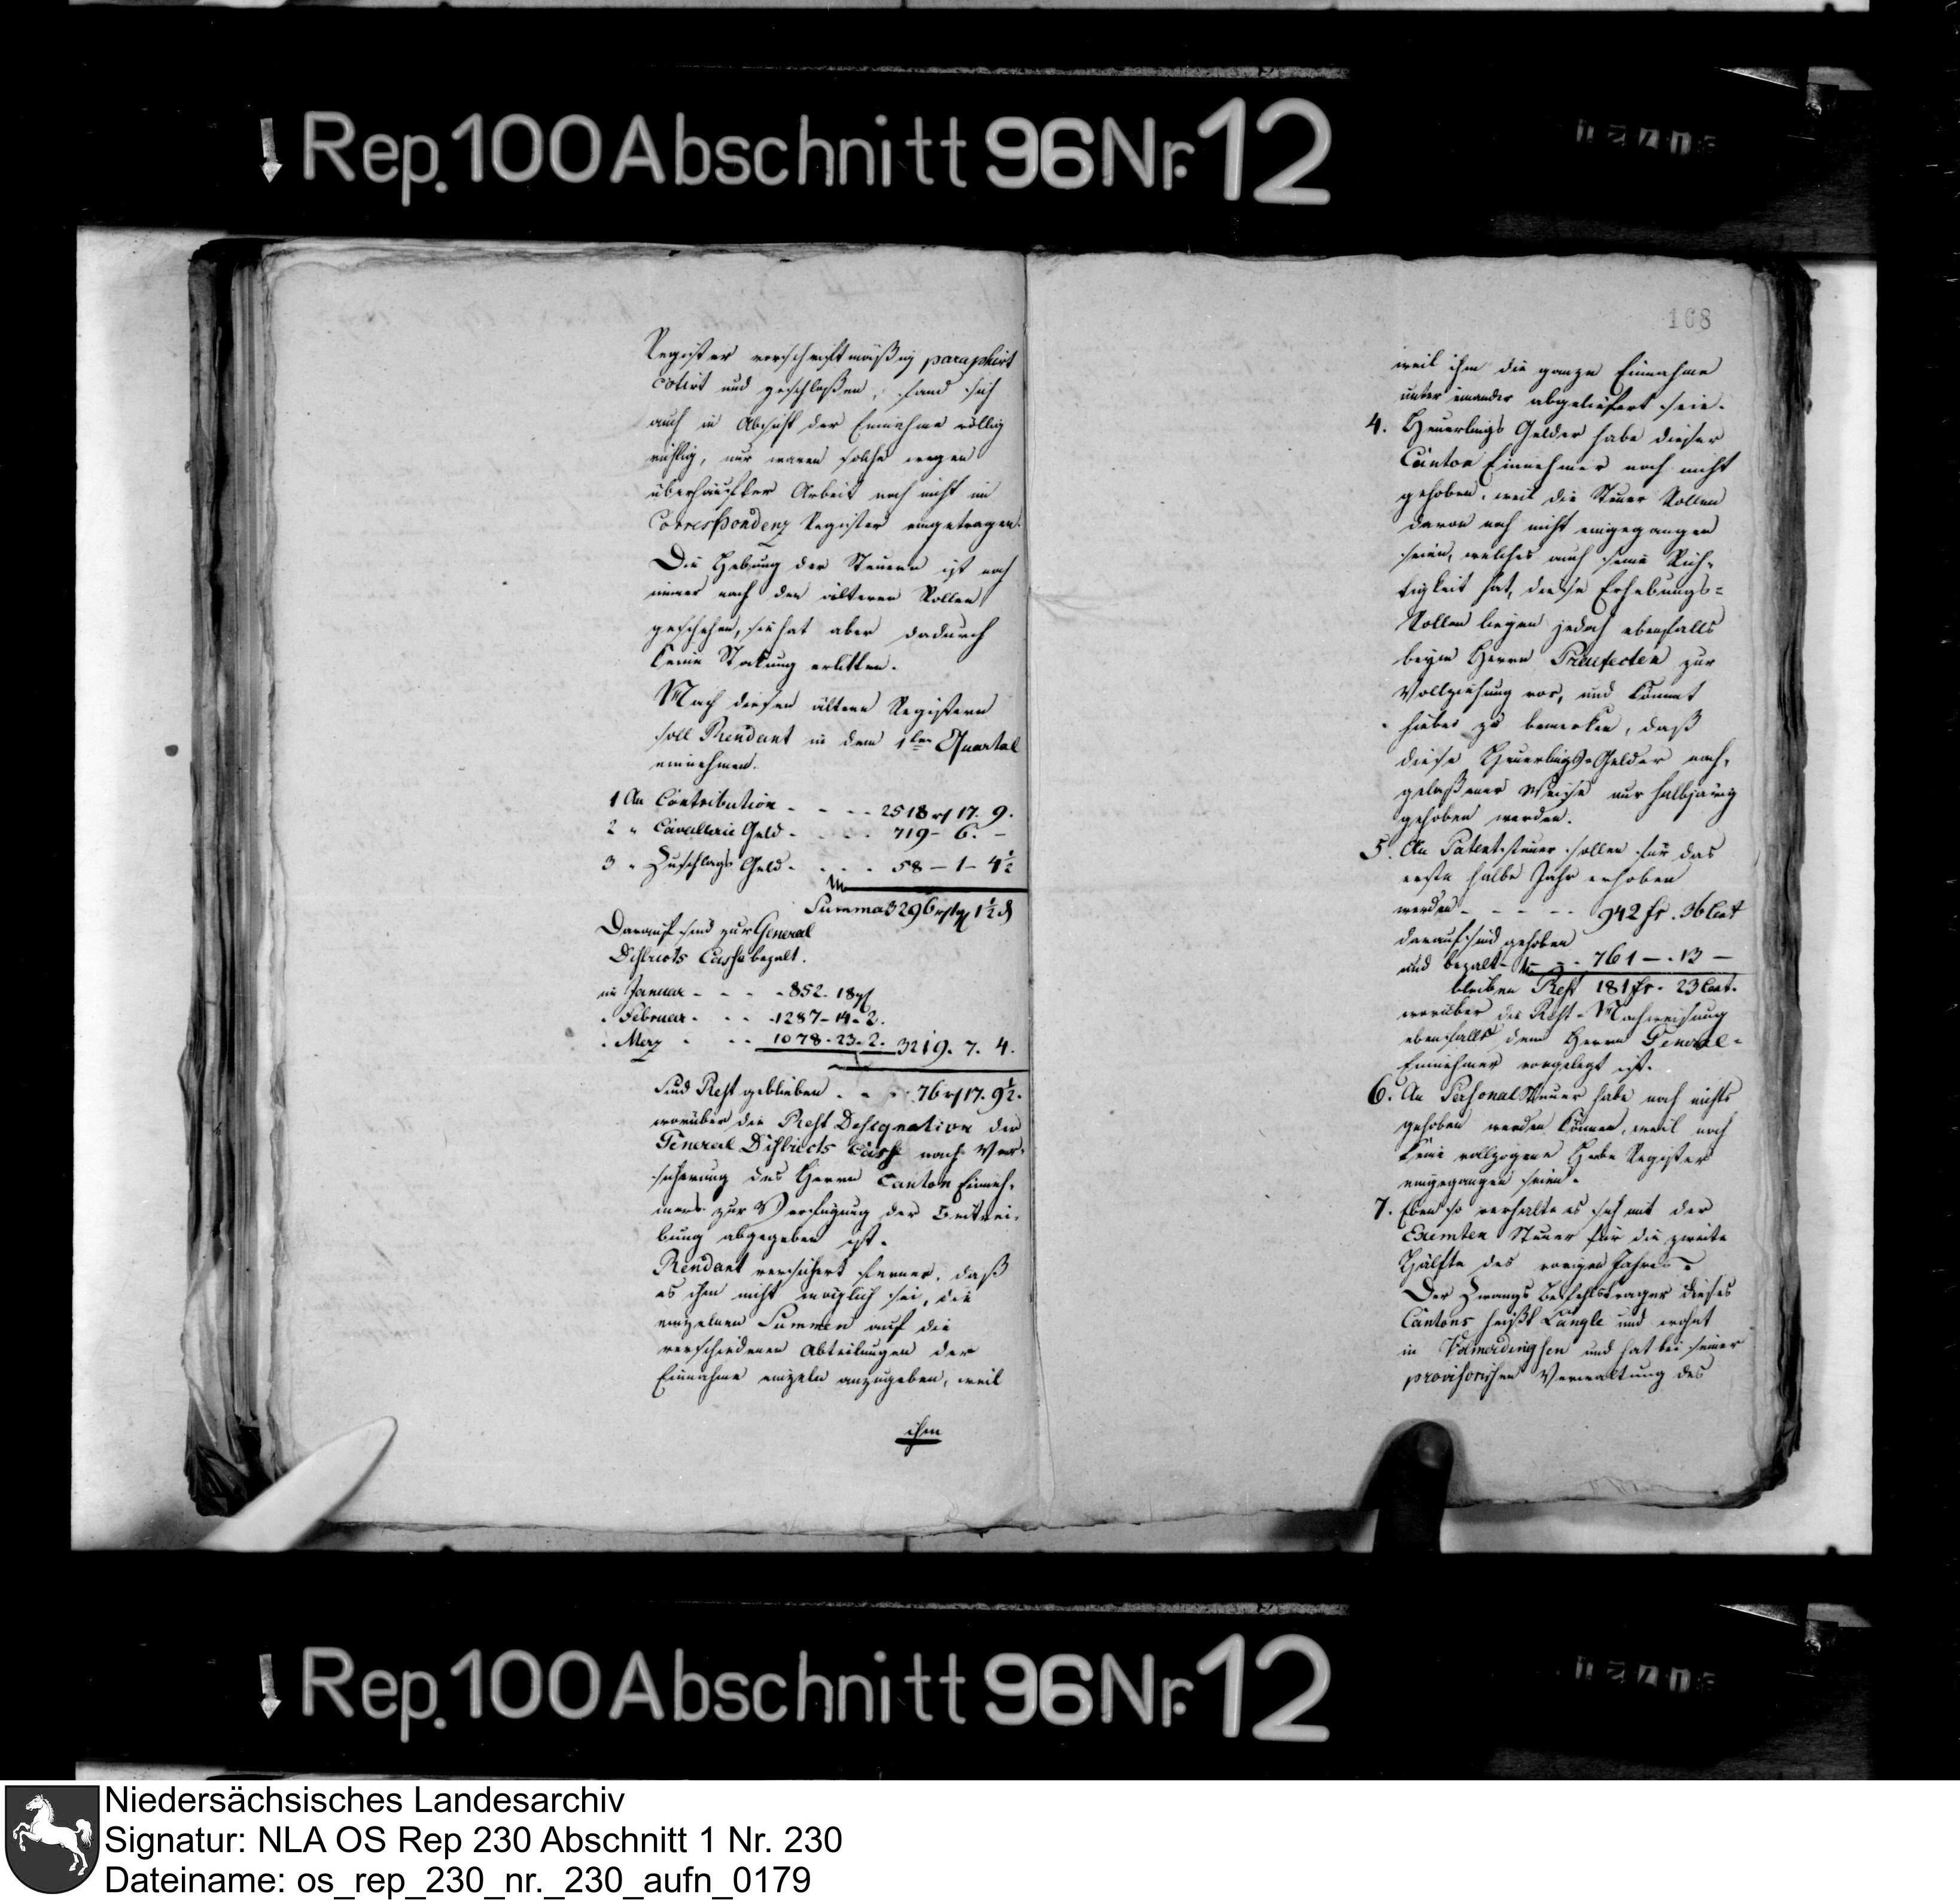 Rep. 100 Abschnitt 96 Nr. 12
Register vorschriftmäßig paraphirt
cotirt und geschloßen, fand sich
auch in Absicht der Einnahme völlig
richtig, nur waren solche wegen
überhäufter Arbeit noch nicht im
Correspondenz Register eingetragen.
Die Hebung der Steuern ist noch
immer nach den älteren Rollen
geschehen, sie hat aber dadurch
keine Stokung erlitten.
Nach diesen ältern Registern
soll Rendant in dem 1ten Quartal
einnehmen.
1 An Contribution - - - - 2518 rt 17. 9.
2 " Cavallerie Geld - - - - 719 - 6. -
3 " Zuschlags Geld - - - - 58 - 1 - 4½
Summa 3296 rt 1½ d
Darauf sind zur General
Districts Casse bezalt.
im Januar - - - - 852. 18 g
" Februar - - - 1287 - 14 - 2.
" Merz - - - 1078 - 23 - 2. 3219. 7. 4.
Sind Rest geblieben - - - 76 rt 17. 9½.
worüber die Rest Designation der
General Districts Casse nach Ver-
sicherung des Herrn Canton Einneh-
mers zur Verfügung der Beitrei-
bung abgegeben ist.
Rendant versichert ferner, daß
es ihm nicht möglich sei, die
einzelnen Summen auf die
verschiedenen Abteilungen der
Einnahme einzeln anzugeben, weil
ihm
168
weil ihm die ganze Einnahme
unter einander abgeliefert seie.
4. Heuerlings Gelder habe dieser
Canton Einnehmer noch nicht
gehoben, weil die Steuer Rollen
davon noch nicht eingegangen
seien, welches auch seine Rich-
tigkeit hat, diese Erhebungs-
Rollen liegen jedoch ebenfalls
beym Herrn Praefecten zur
Vollziehung vor, und kommt
hiebei zu bemerken, daß
diese Heuerlings-Gelder nach-
gelaßener Weise nur halbjärig
gehoben werden.
5. An Patentsteuer sollen für das
erste halbe Jahr erhoben
werden - - - - - 942 fr. 36 Cent
darauf sind gehoben
und bezalt - - - 761 - . 13 -
bleiben Rest 181 fr. 23 Cent.
worüber die Rest-Nachweisung
ebenfalls dem Herrn General-
Einnehmer vorgelegt ist.
6. An Personal Steuer habe noch nichts
gehoben werden können, weil noch
keine vollzogene Hebe Register
eingegangen seien.
7. Eben so verhalte es sich mit der
Exemten Steuer für die zweite
Hälfte des vorigen Jahres.
Der Zwangs Befehlsträger dieses
Cantons heißt Längle und wohnt
in Volmerdingsen und hat bei seiner
provisorischen Verwaltung des
Rep. 100 Abschnitt 96 Nr. 12
Niedersächsisches Landesarchiv
Signatur: NLA OS Rep 230 Abschnitt 1 Nr. 230
Dateiname: os_rep_230_nr._230_aufn_0179